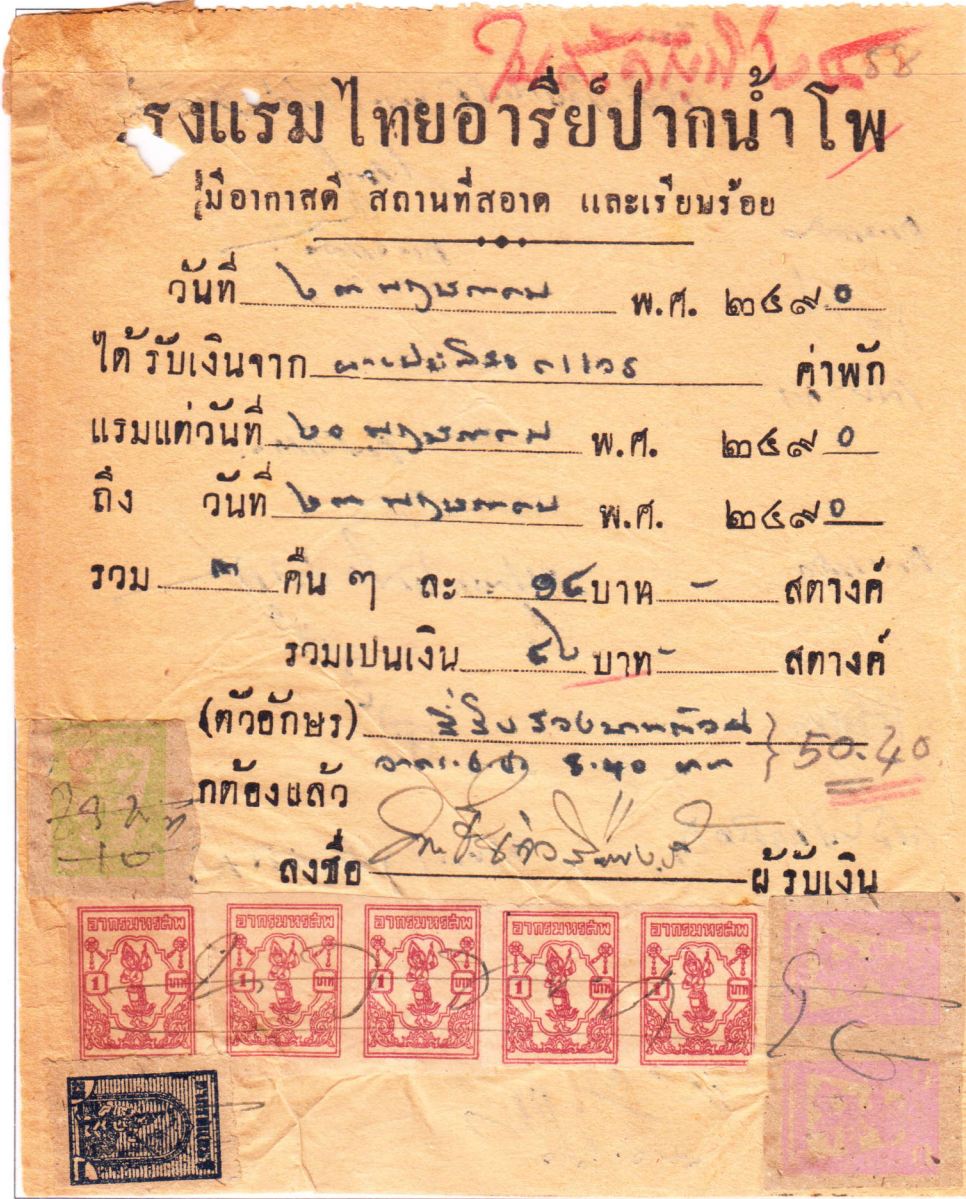 ๕๘
โรงแรมไทยอารีย์ปากน้ำโพ
มีอากาสดี สถานที่สอาด และเรียบร้อย
วันที่ ๒๓ พฤษภาคม พ.ศ. ๒๔๙๐
ได้รับเงินจาก ค่าพัก
แรมแต่วันที่ ๒๐ พฤษภาคม พ.ศ. ๒๔๙๐
ถึง วันที่ ๒๓ พฤษภาคม พ.ศ. ๒๔๙๐
รวม ๓ คืน ๆ ละ ๑๔ บาท - สตางค์
รวมเปนเงิน ๔๒ บาท - สตางค์
(ตัวอักษร) สี่สิบสองบาทถ้วน
อากร ๘.๔๐ บาท } 50.40
ถูกต้องแล้ว
ลงชื่อ ผู้รับเงิน
อากรมหรสพ อากรมหรสพ อากรมหรสพ อากรมหรสพ อากรมหรสพ
1 บาท 1 บาท 1 บาท 1 บาท 1 บาท